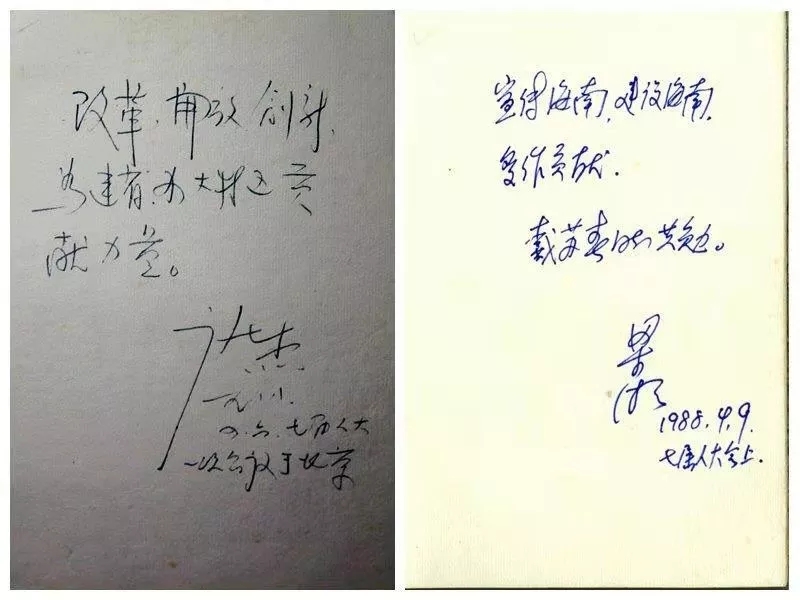 改革、开放、创新、
为建省、办大特区贡
献力量。
许士杰
一九八八.
四.六.七届人大
一次会议于北京
宣传海南、建设海南、
多作贡献.
戴苏春 共勉。
梁湘
1988.4.9.
七届人大会上.